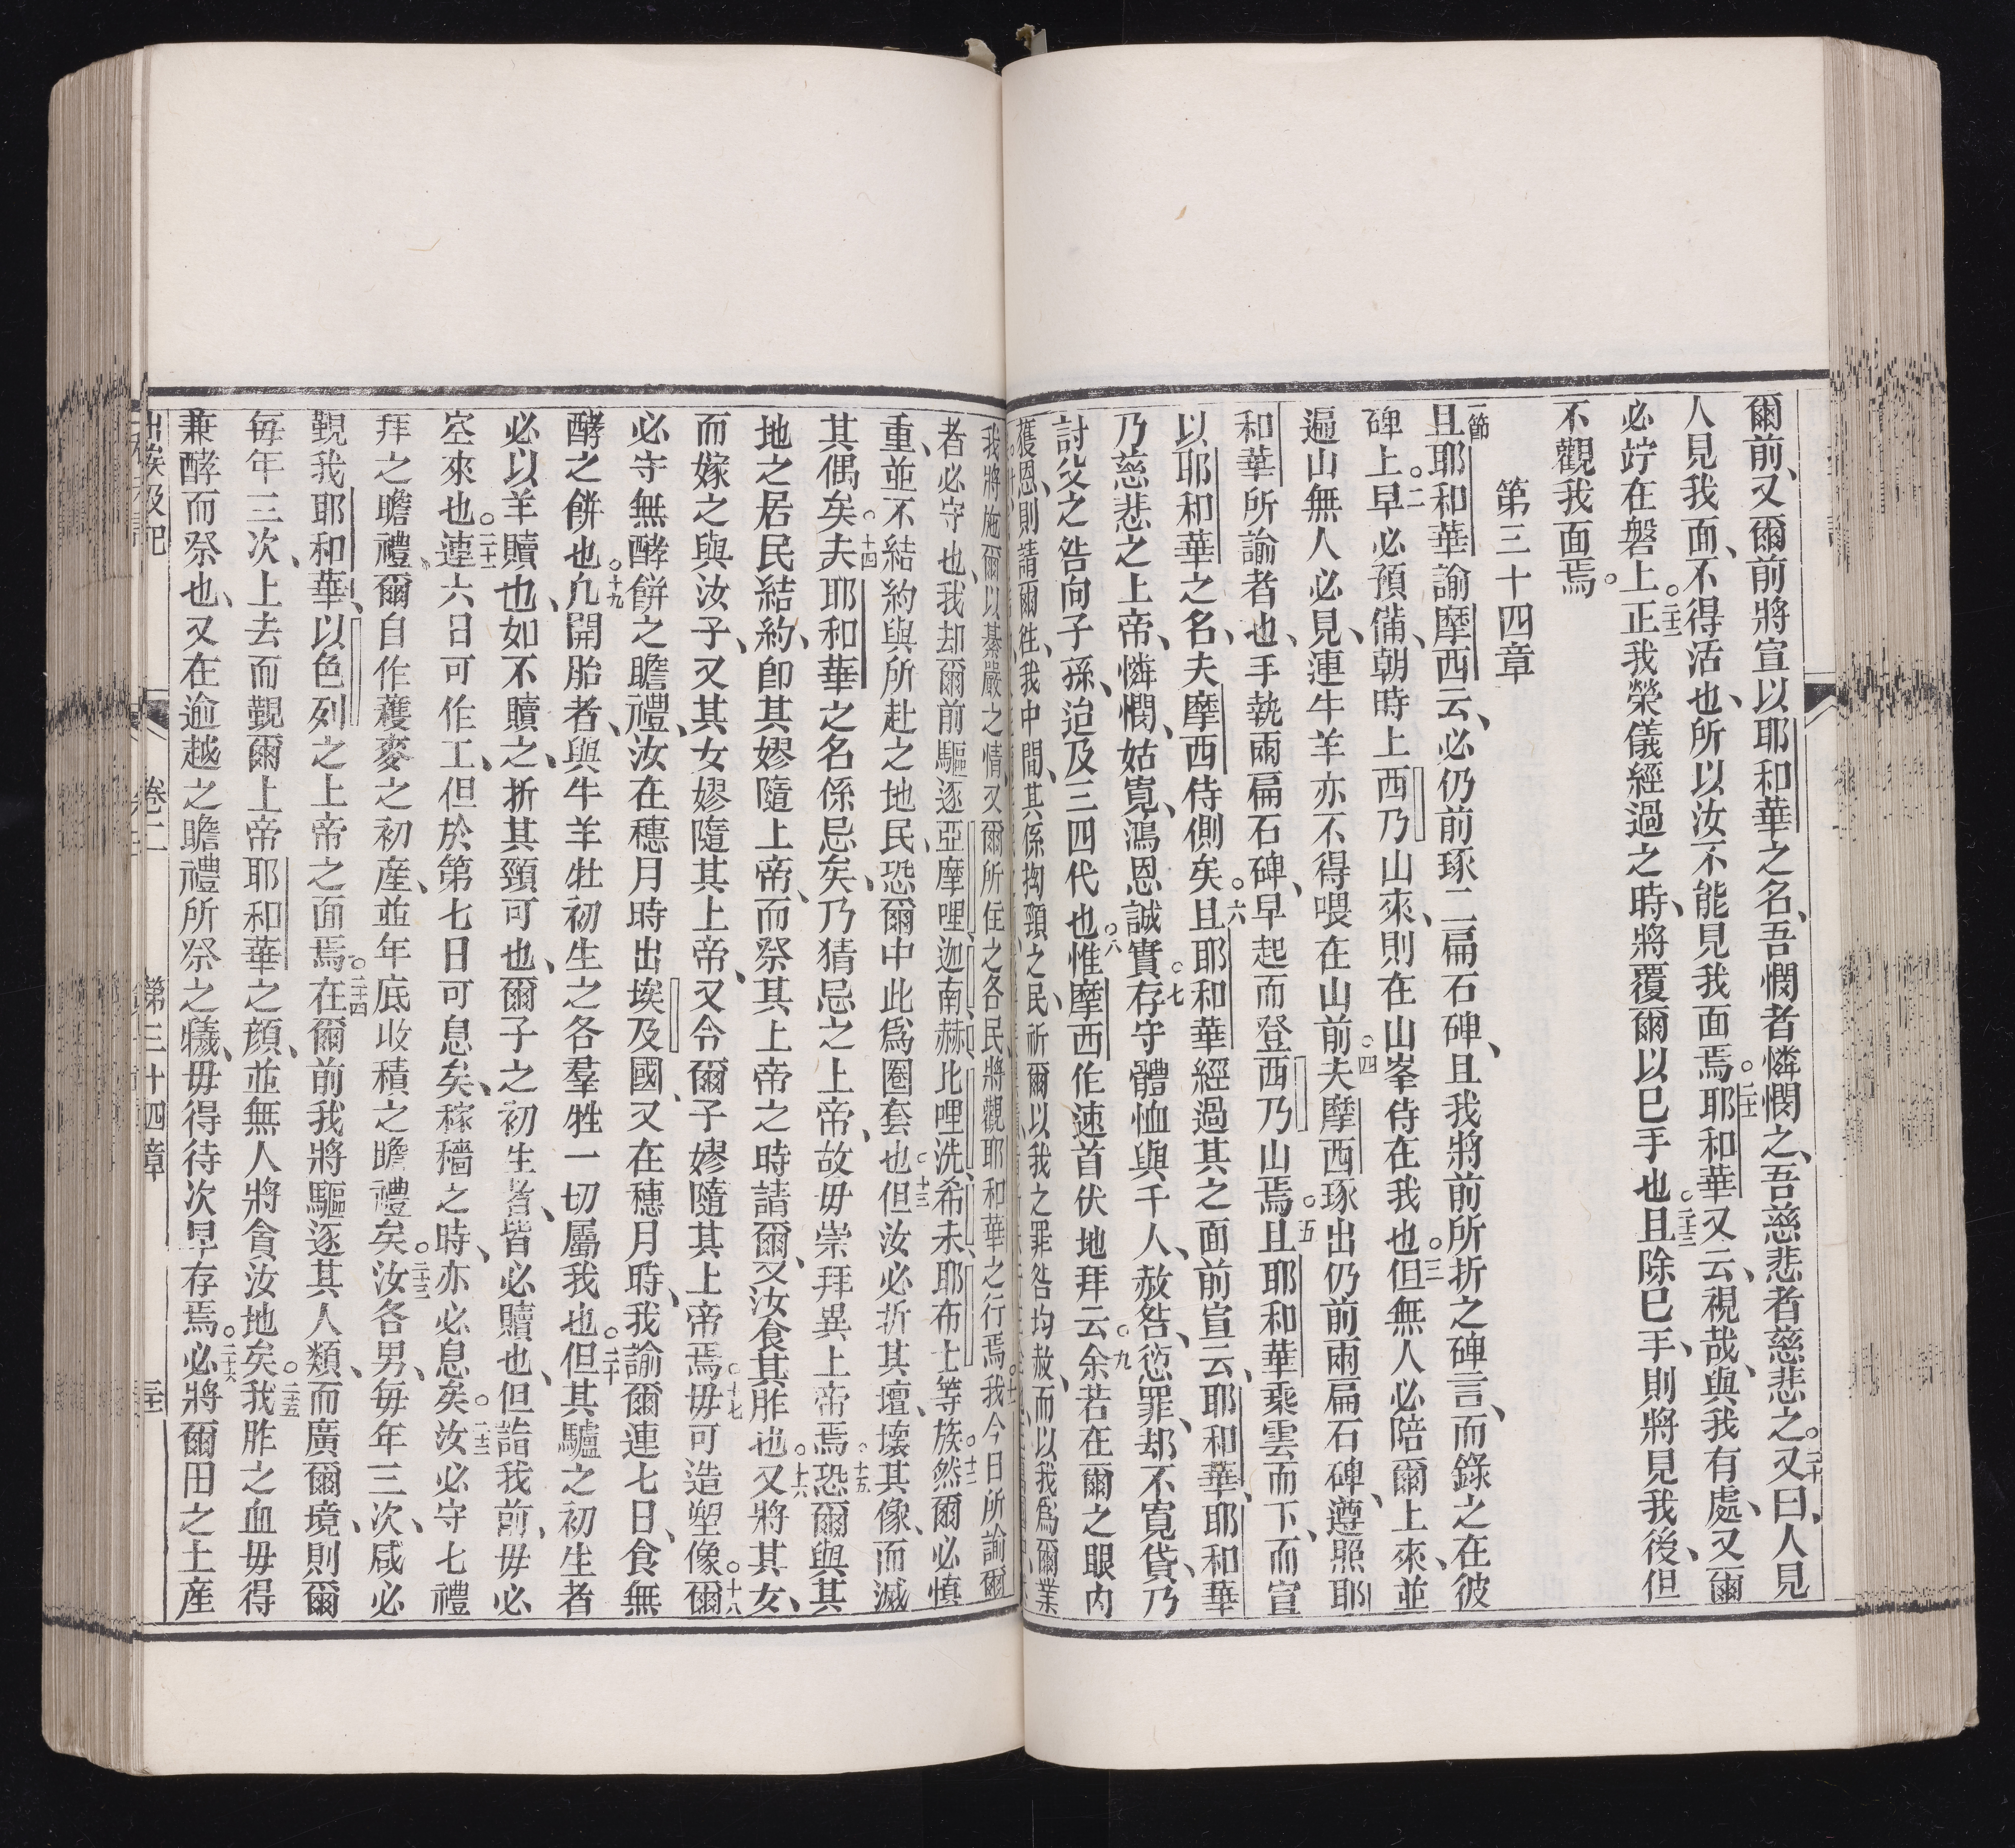 爾前、又爾前將宣以耶和華之名、吾憫者憐憫之、吾慈悲者慈悲之。二十又曰、人見
人見我面、不得活也、所以汝不能見我面焉。二十一耶和華又云、視哉、與我有處、又爾
必竚在磐上。二十二正我榮儀經過之時、將覆爾以已手也。二十三且除已手、則將見我後、但
不觀我面焉。
第三十四章
一節且耶和華諭摩西云、必仍前琢二扁石碑、且我將前所折之碑言、而錄之在彼
碑上。二早必預備、朝時上西乃山來、則在山峯侍在我也。三但無人必陪爾上來、並
遍山無人必見、連牛羊亦不得喂在山前。四夫摩西琢出仍前兩扁石碑、遵照耶
和華所諭者也、手執兩扁石碑、早起而登西乃山焉。五且耶和華乘雲而下、而宣
以耶和華之名、夫摩西侍側矣。六且耶和華經過其之面前宣云、耶和華、耶和華
乃慈悲之上帝、憐憫、姑寬、鴻恩誠實。七存守體恤與千人、赦咎、愆罪、却不寬貸、乃
討父之咎向子孫、迨及三四代也。八惟摩西作速首伏地拜云。九余若在爾之眼內
獲恩、則請爾徃、我中間、其係拗頸之民、祈爾以我之罪咎均赦、而以我爲爾業
我將施爾以綦嚴之情、又爾所住之各民將觀耶和華之行焉。十一我今日所諭爾
者必守也、我却爾前驅逐亞摩哩、迦南、赫、比哩洗、希未、耶布士等族。十二然爾必愼
重、並不結約與所赴之地民、恐爾中此爲圈套也。十三但汝必折其壇、壞其像、而滅
其偶矣。十四夫耶和華之名係忌矣、乃猜忌之上帝、故毋崇拜異上帝焉。十五恐爾與其
地之居民結約、卽其嫪隨上帝、而祭其上帝之時請爾、又汝食其胙也。十六又將其女、
而嫁之與汝子、又其女嫪隨其上帝、又令爾子嫪隨其上帝焉。十七毋可造塑像。十八爾
必守無酵餅之瞻禮、汝在穗月時出埃及國、又在穗月時、我諭爾連七日、食無
酵之餅也。十九凢開胎者、與牛羊牡初生之各羣牲一切屬我也。二十但其驢之初生者
必以羊贖也、如不贖之、折其頸可也、爾子之初生者、皆必贖也、但詣我前、毋必
空來也。二十一連六日可作工、但於第七日可息矣、稼穡之時、亦必息矣。二十二汝必守七禮
拜之瞻禮、爾自作蘞麥之初產、並年底收積之瞻禮矣。二十三汝各男、每年三次、咸必
觐我耶和華、以色列之上帝之面焉。二十四在爾前我將驅逐其人類、而廣爾境、則爾
每年三次、上去而覲爾上帝耶和華之顔、並無人將貪汝地矣。二十五我胙之血毋得
兼酵而祭也、又在逾越之瞻禮所祭之犧、毋得待次早存焉。二十六必將爾田之土產
出埃及記 卷二 第三十四章